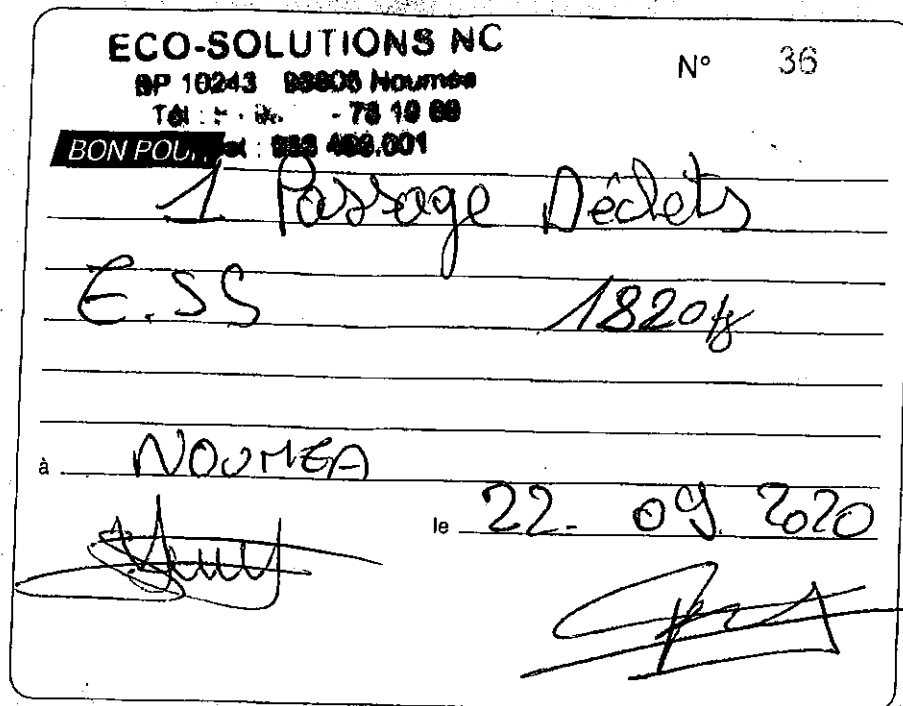 ECO-SOLUTIONS NC
N° 36
BP 10243 98805 Nouméa
- 78 19 69
BON POUR
1 Passage Déchets
E.SS 1820 kg
à NOUMEA
le 22. 09. 2020